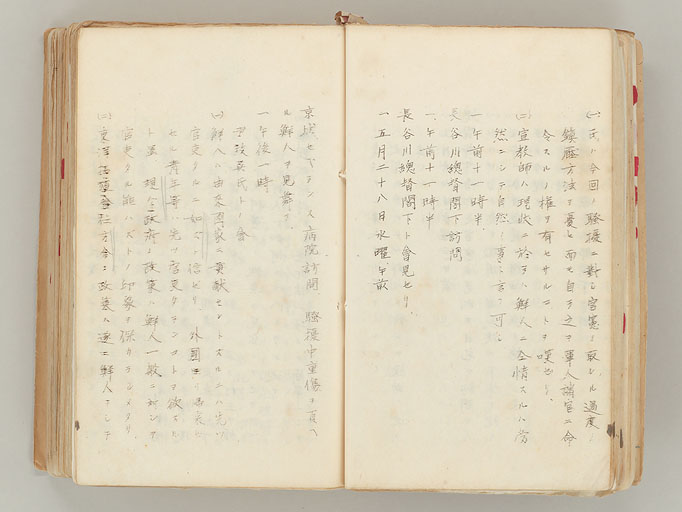 (一)氏ハ今回ノ騒擾ニ對シ官憲ノ取レル過度ノ
鎮壓方法ヲ憂ヒ而モ自ラ之ヲ軍人諸官ニ命
令スルノ權ヲ有セサルコトヲ嘆セリ
(二)宣教師ハ現状ニ於テハ鮮人ニ同情スルハ当
然ニシテ自然ノ事ト言フ可シ
一午前十一時半
長谷川總督閣下訪問
一、午前十一時半
長谷川總督閣下ト會見セリ
一五月二十八日水曜、午前
京城セブランス病院訪問 騒擾中重傷ヲ負ヘ
ル鮮人ヲ見舞フ
一午後一時
尹致昊氏ト會
(一)鮮人ハ由来国家ニ貢献セントスルニハ先ツ
官吏タルニ如カスト信セリ 外国ヨリ帰来
セル青年等ハ先ツ官吏タランコトヲ欲スル
ト雖 現今ノ政府ノ政策ハ鮮人一般ニ対シテ
官吏タル能ハズトノ印象ヲ保カラシメタリ
(二)東洋拓殖會社 ノ政策ハ遂ニ鮮人ヲシテ